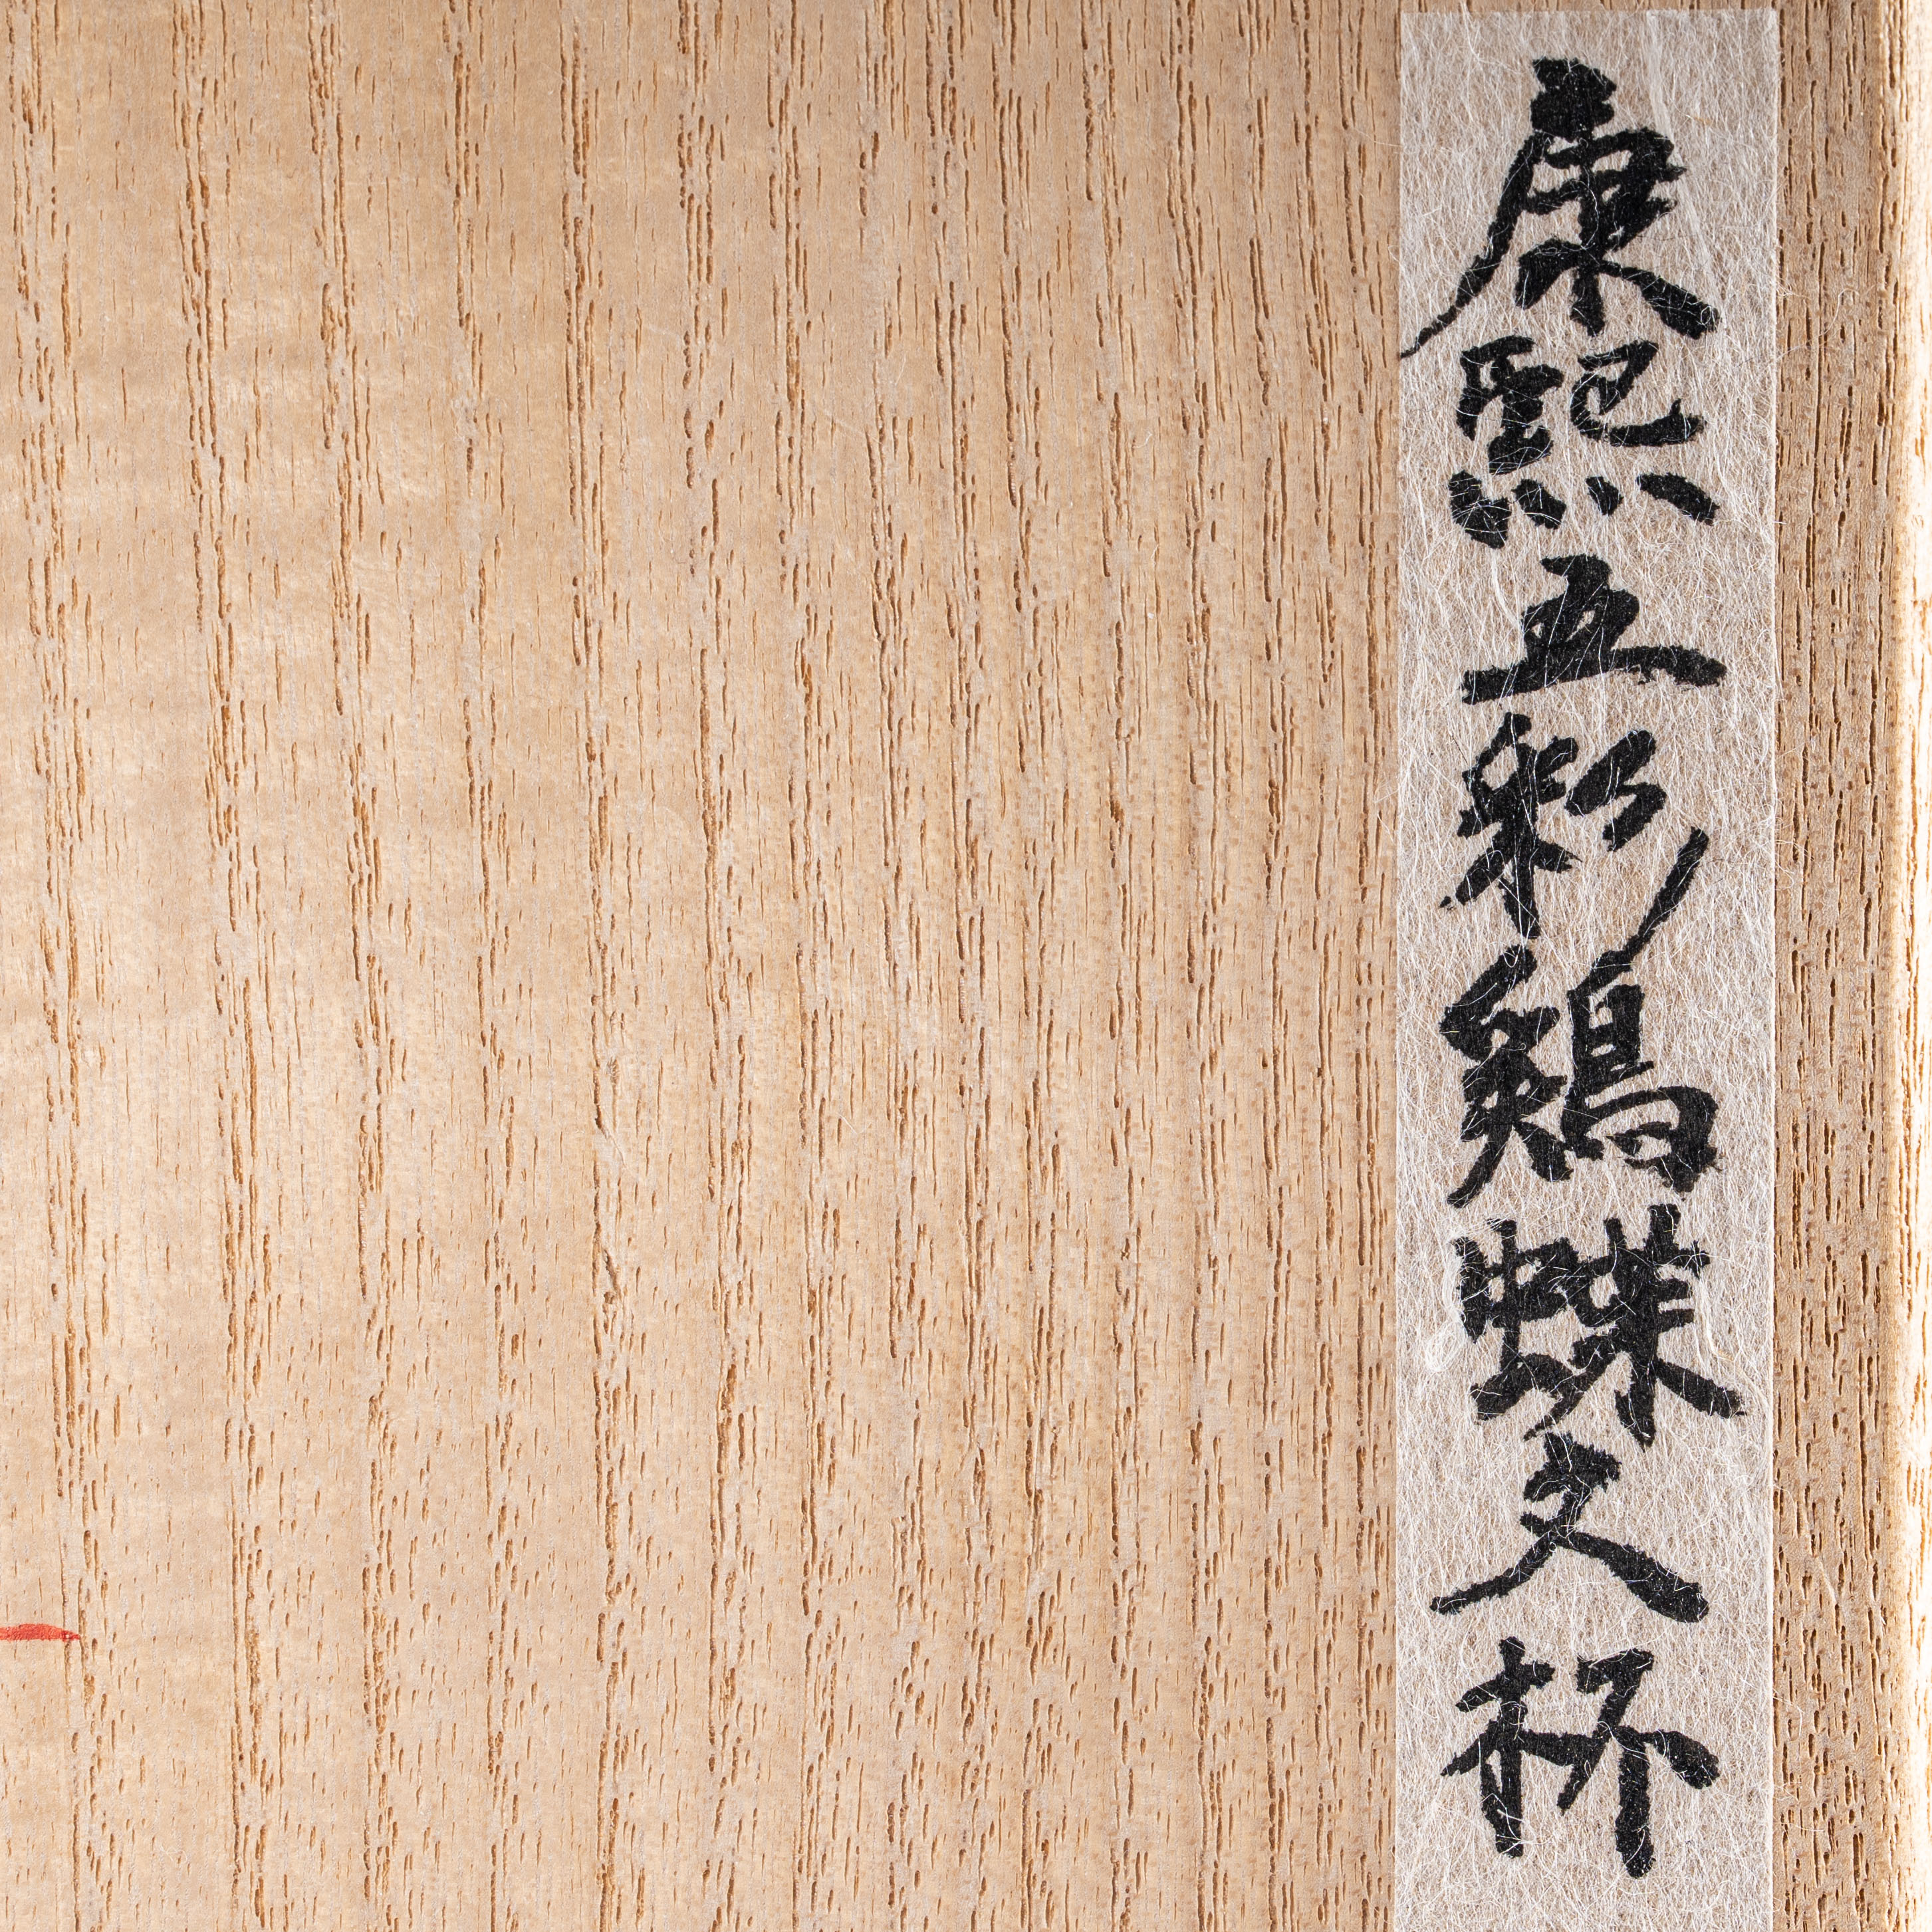 康熙五彩鶏蝶文杯